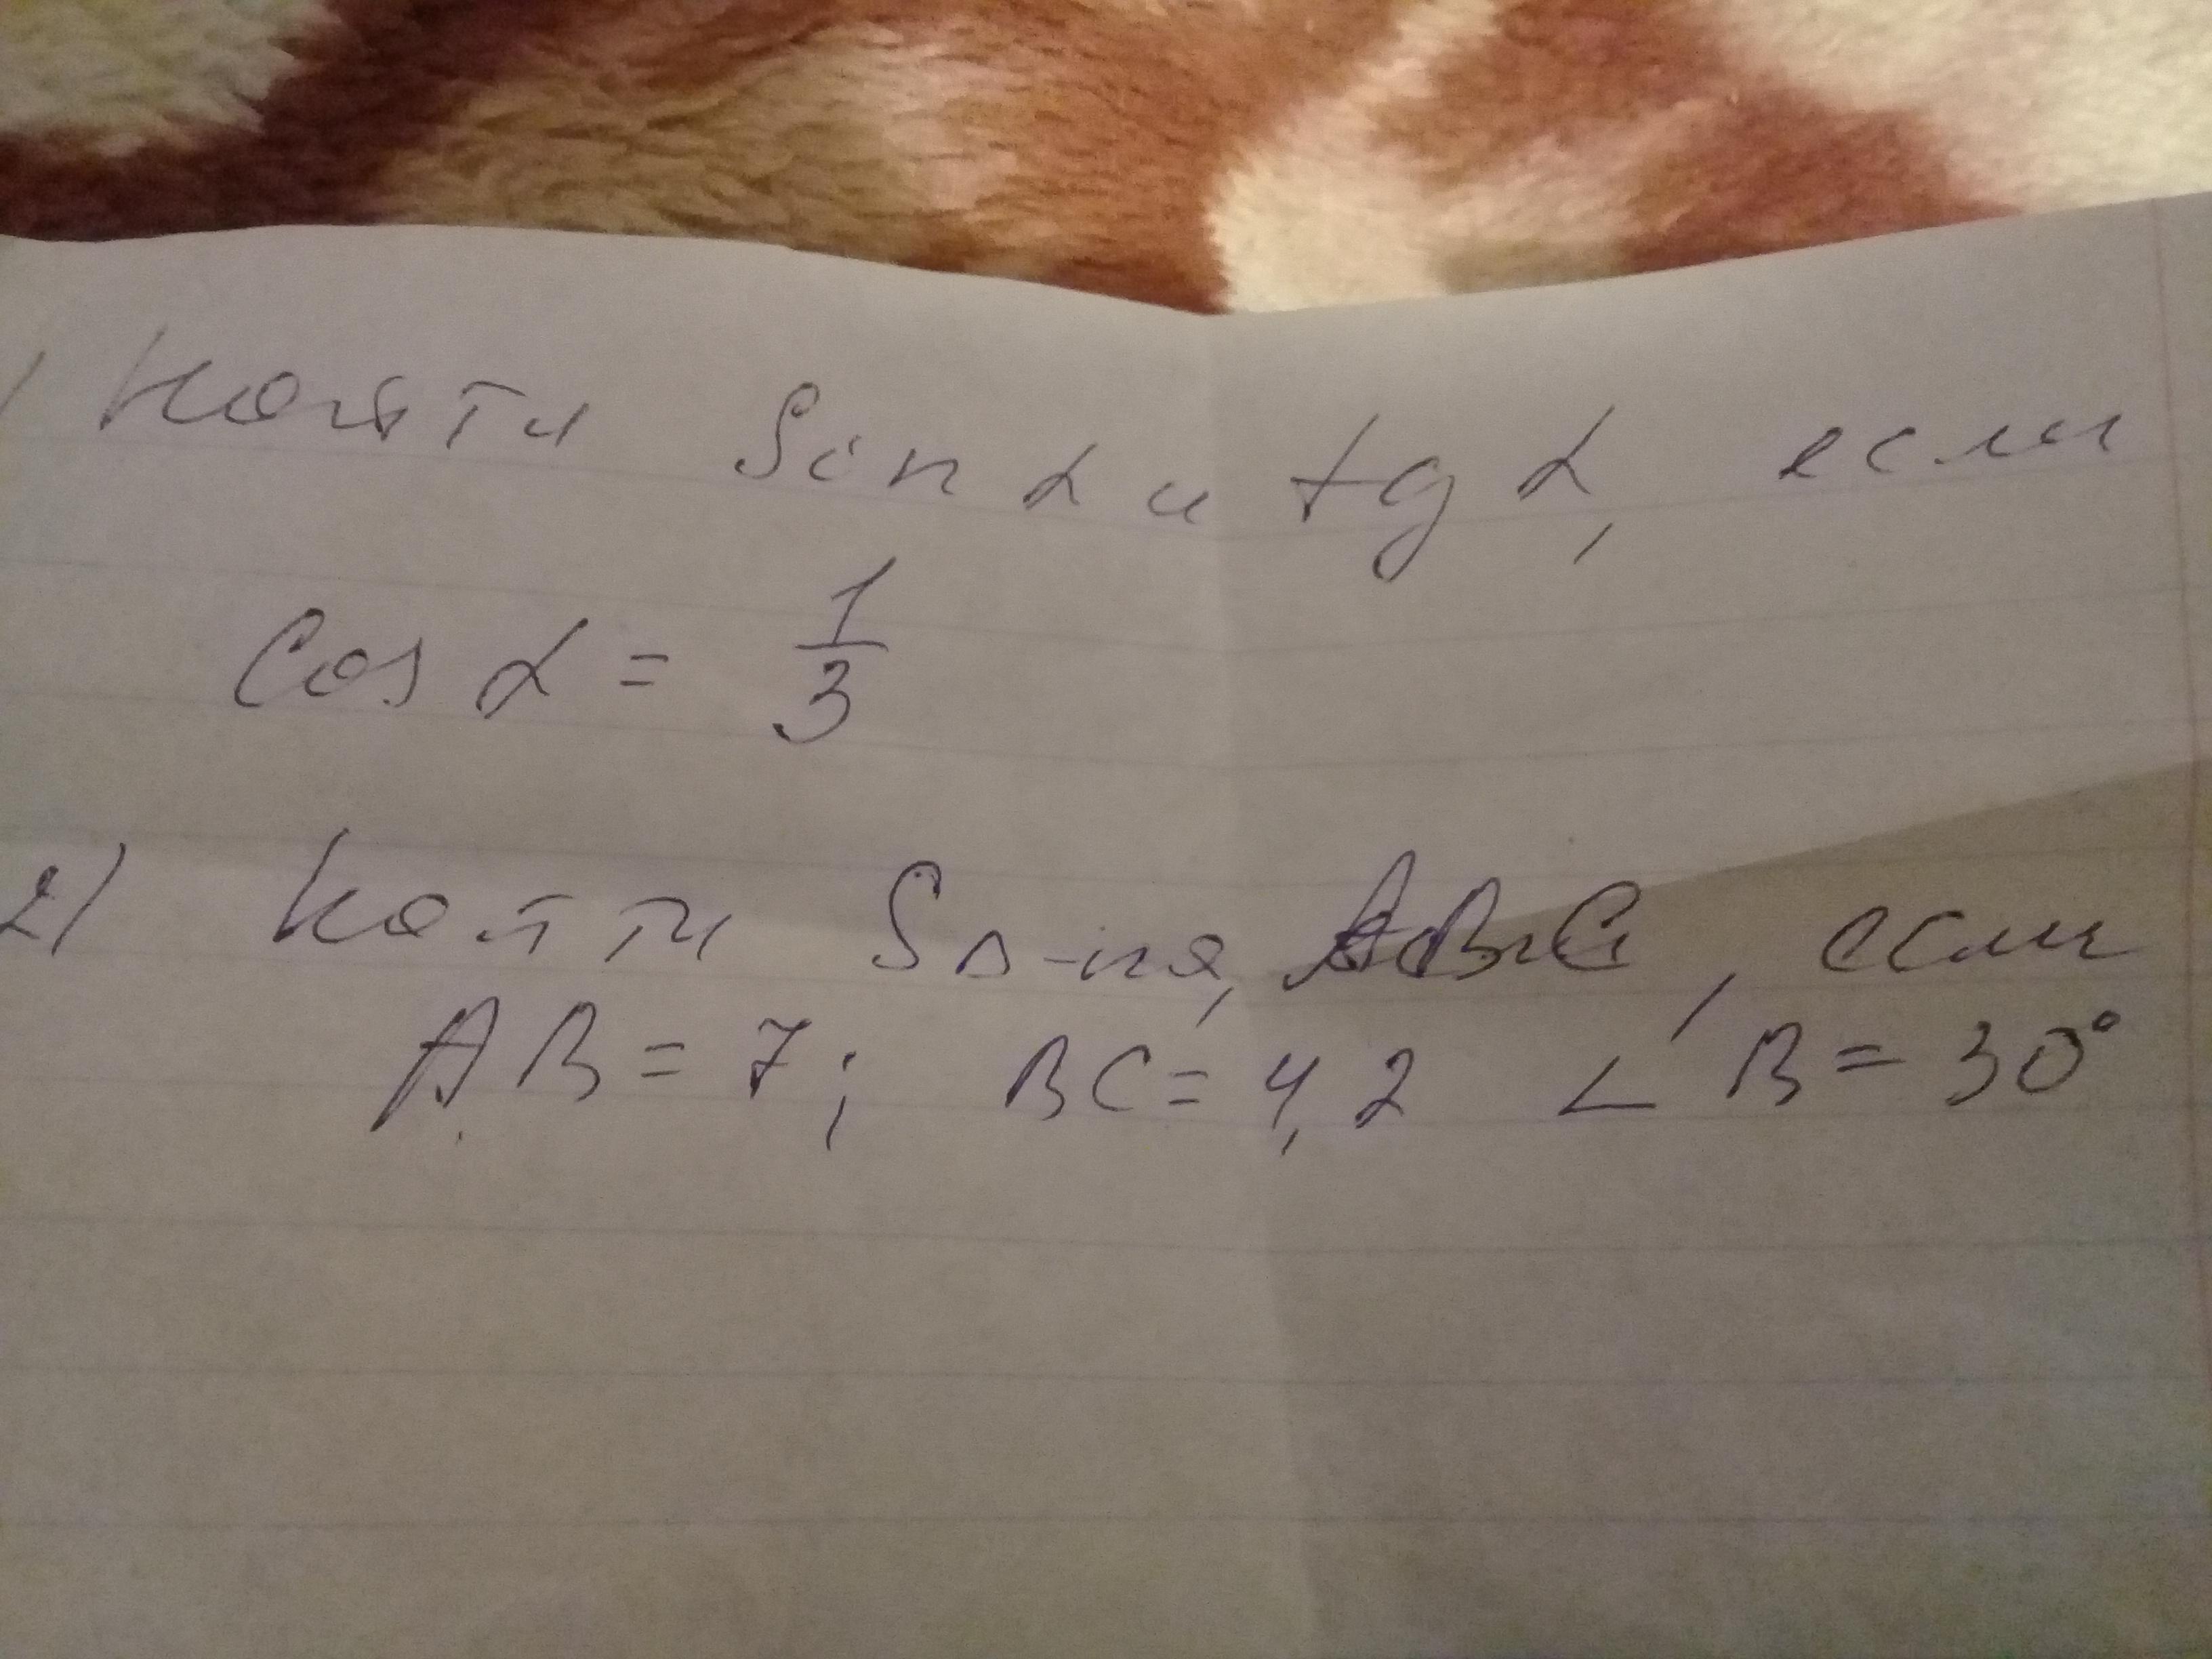 ) Найти Sin α и tg α, если
Cos α = 1/3
2) Найти S Δ-ка, ABC, если
AB = 7; BC = 4,2 ∠ B = 30°